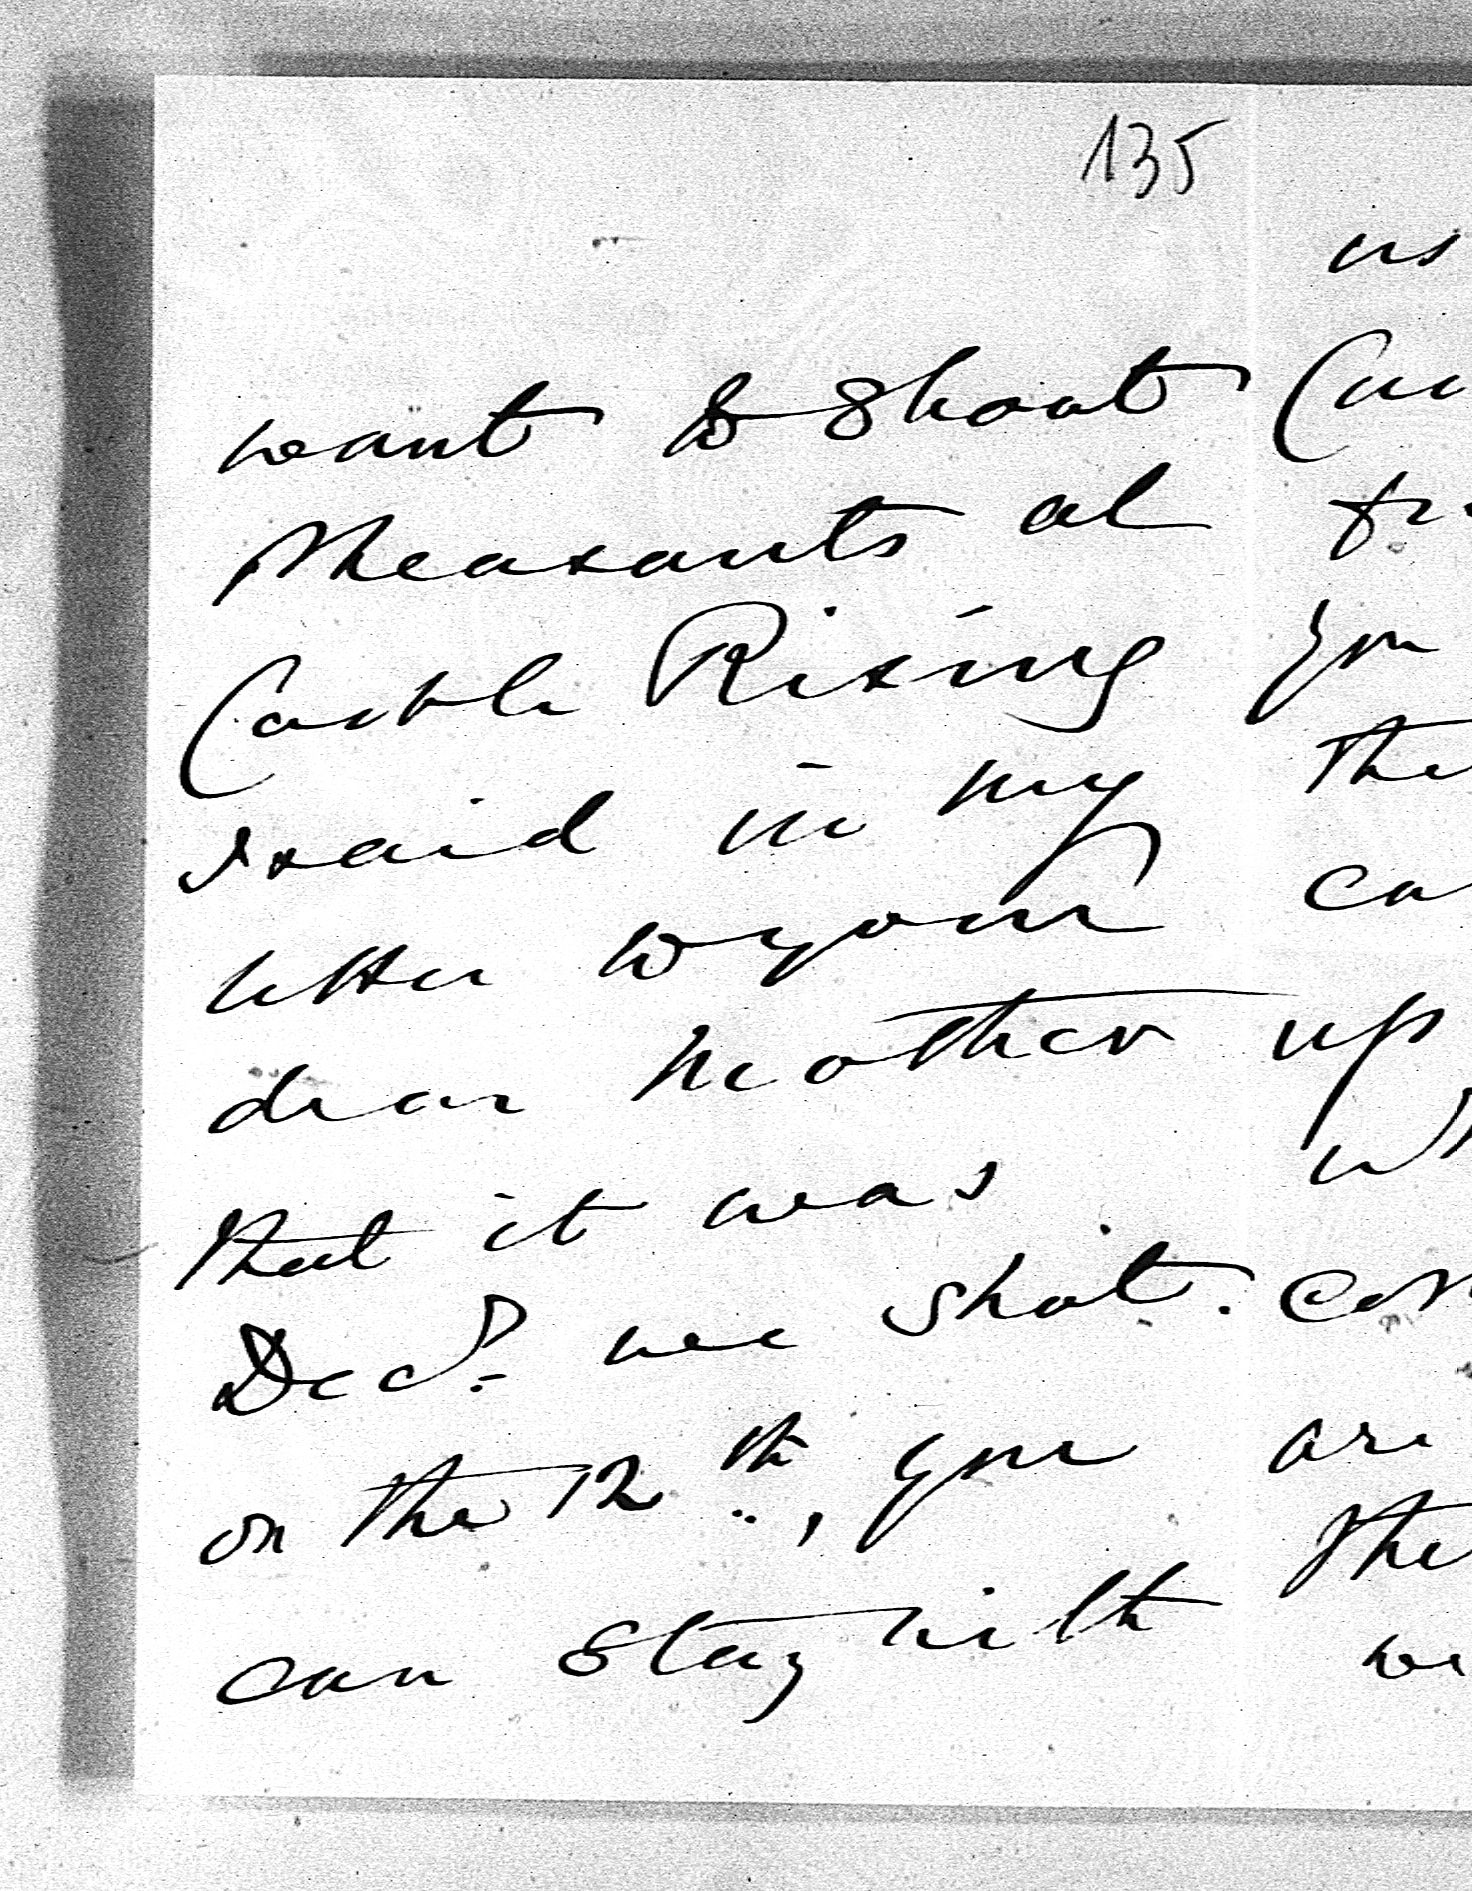 135
want to shoot
Pheasants at
Castle Rising
I said in my
letter to your
dear Mother
that it was
Decr. we shot.
on the 12th, you
can stay with
us
you
up
are